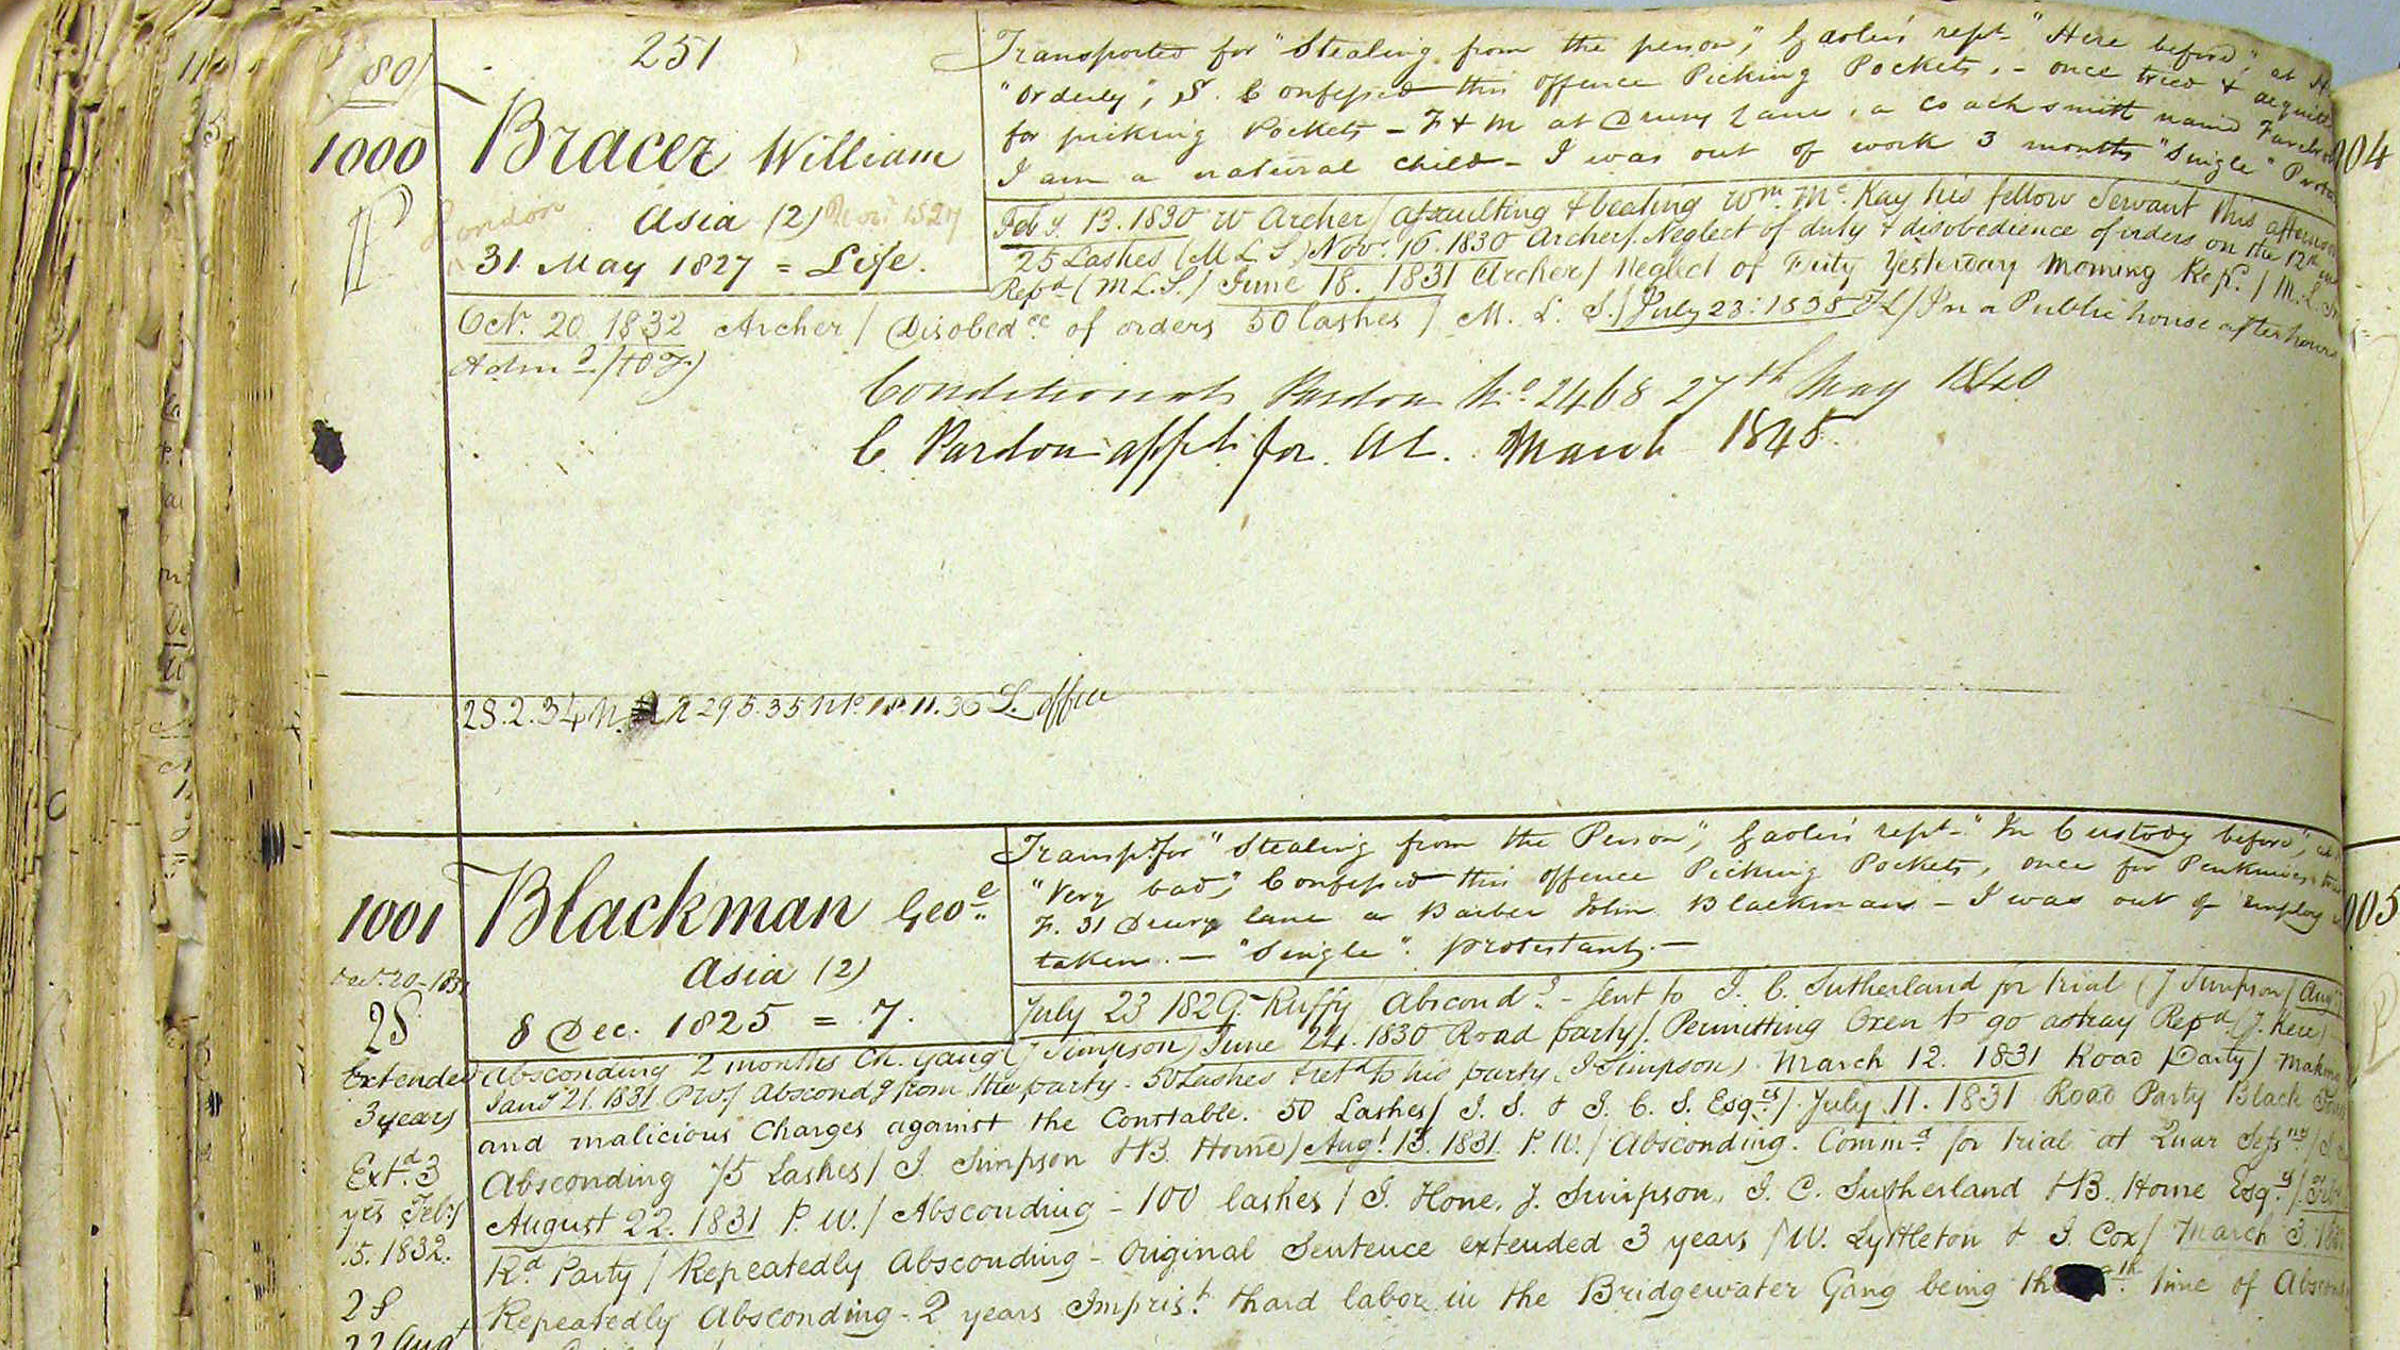 251
80
1000
Bracer William
London
Asia (2) Nov. 1827
31. May 1827 = Life.
Transported for "Stealing from the person," Gaoler's rept- "Here before," at
"Orderly", S. Confessed this offence Picking Pockets, - once tried & acquitted
for picking Pockets - F & M at Drury Lane, a coach smith named
I am a natural child - I was out of work 3 months "Single"
Feby. 13. 1830 W Archer / assaulting & beating Wm. Mc.Kay his fellow Servant this afternoon
25 Lashes (M L S) Novr. 16. 1830 Archer /. Neglect of duty & disobedience of orders on the 12th
Repd (M L. S. / June 18. 1831 Archer / Neglect of Duty Yesterday Morning Rep. / M. L. S
Octr. 20 1832 Archer / Disobedce. of orders 50 lashes / M. L. S. / July 23: 1838 TL / In a Public house after hours
Admd. /
Conditional Pardon No. 2468 27th May 1840
C. Pardon appd. for. March 1845.
28.2.34 29 5.35 11.36 L. office
1001
Blackman Geoe.
Asia (2)
8 Dec. 1825 = 7.
Transpd. for "Stealing from the Person", Gaoler's rept- "In Custody before",
"Very bad," Confessed this offence Picking Pockets, once for Penknives,
F. 31 Drury lane a Barber John Blackman - I was out of employ
taken. - "Single". Protestant. -
July 23 1829. Ruffy / Abscondg. - Sent to J. C. Sutherland for trial (J Simpson /
Absconding 2 months Ch. Gang (J Simpson) June 24. 1830 Road party /. Permitting Oxen to go astray Repd. (J. Kerr)
Jany 21. 1831 P.W / Abscondg from the party. 50 Lashes & retd to his party. J Simpson) March 12. 1831 Road Party / Making
and malicious Charges against the Constable. 50 Lashes / J. S. & J. C. S. Esqrs /. July 11. 1831 Road Party Black
Absconding 75 Lashes / J. Simpson & B Horne / Augt. 13. 1831. P. W. / Absconding. Commd. for trial at Quar Sessns /
August 22. 1831 P. W. / Absconding - 100 lashes / J. Hone, J. Simpson, J. C. Sutherland & B. Horne Esqrs. /
Rd. Party / Repeatedly Absconding - Original Sentence extended 3 years / W. Lyttleton & J. Cox / March 3.
Repeatedly Absconding - 2 years Imprist. & hard labor in the Bridgewater Gang being the time of
20 - 183
28
Extended
3 years
Extd. 3
yrs Feby
15. 1832.
28
22 Augt